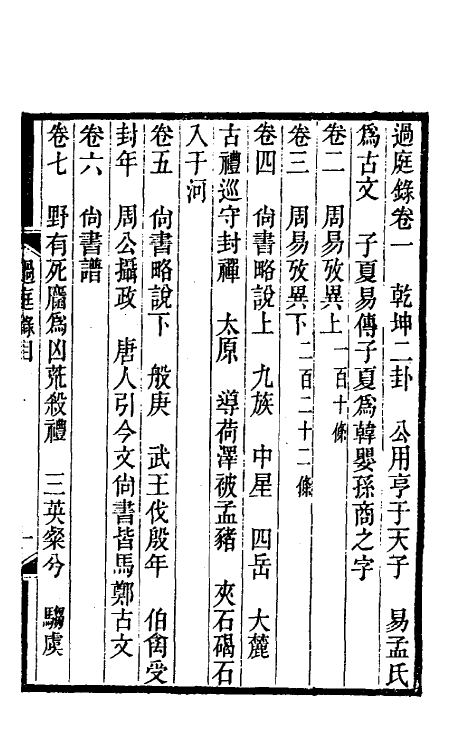 過庭錄卷一　乾坤二卦　公用亨于天子　易孟氏
爲古文　子夏易傳子夏爲韓嬰孫商之字
卷二　周易攷異上一百十條
卷三　周易攷異下二百二十二條
卷四　尙書略說上　九族　中星　四岳　大麓
古禮巡守封禪　太原　導荷澤被孟豬　夾石碣石
入于河
卷五　尙書略說下　般庚　武王伐殷年　伯禽受
封年　周公攝政　唐人引今文尙書皆馬鄭古文
卷六　尙書譜
卷七　野有死麕爲凶荒殺禮　三英粲兮　騶虞
過庭錄目
一